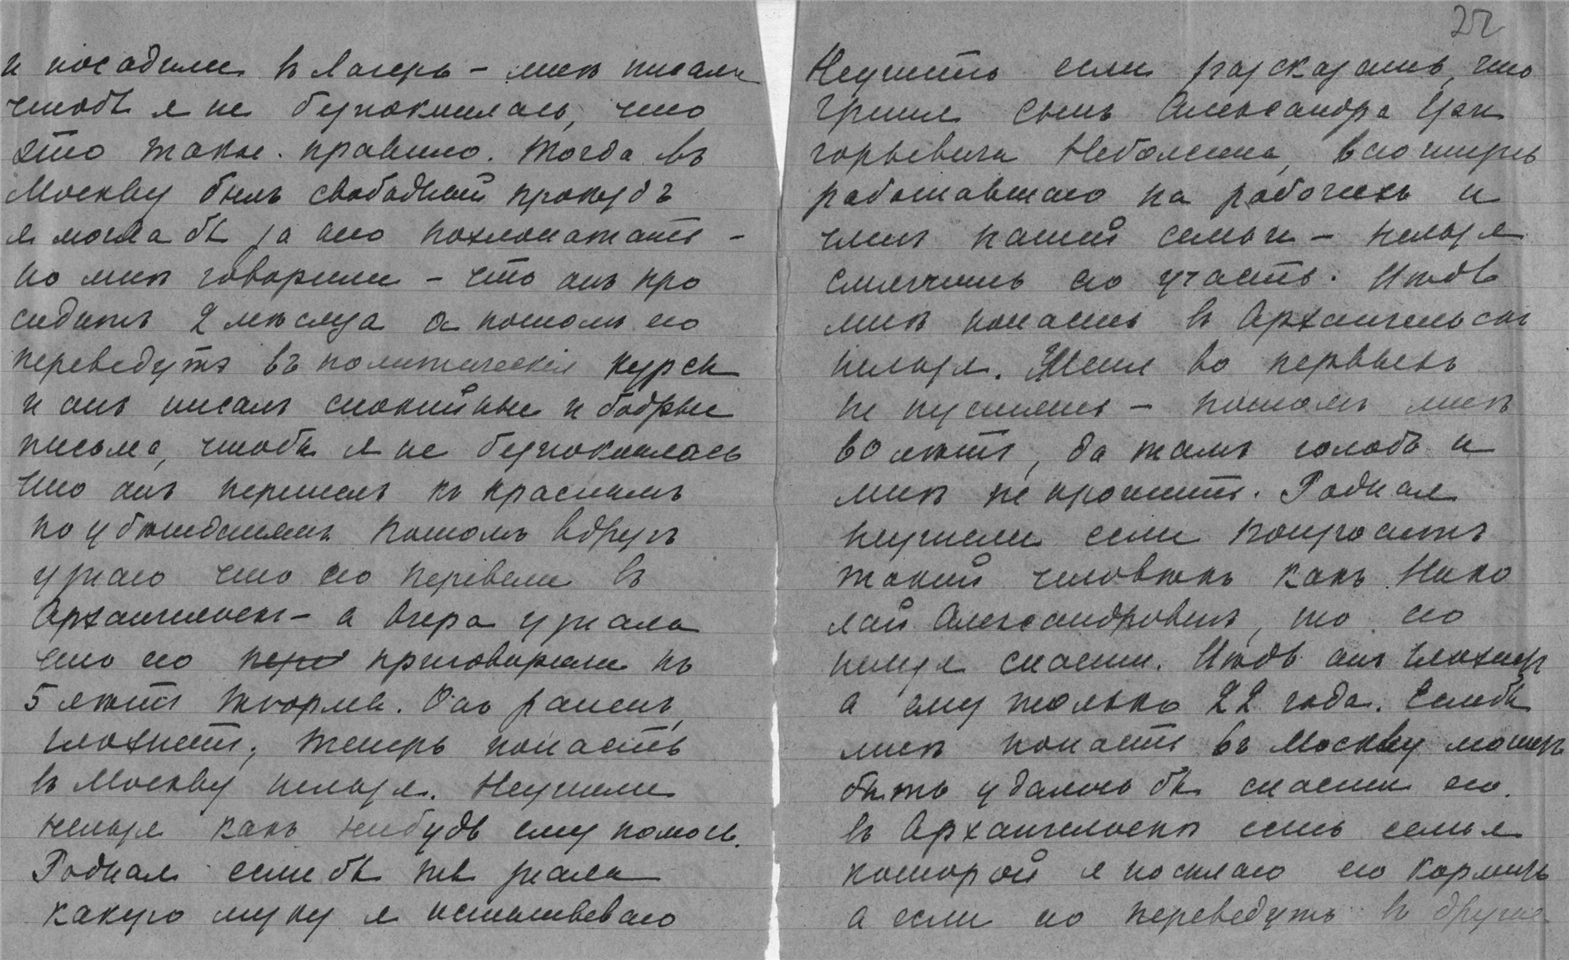 и посадили въ Лагерь – мнѣ писали
чтобъ я не безпокоилась, что
это такое правило. Тогда въ
Москву былъ свободный проѣздъ
я могла бъ за него похлопотать –
но мнѣ говорили – что онъ про
сидитъ 2 мѣсяца а потомъ его
переведутъ въ политическія курсы
и онъ писалъ спокойные и бодрые
письма, чтобы я не безпокоилась
Что онъ перешелъ къ краснымъ
по убѣжденіямъ потомъ вдругъ
узнаю что его перевели въ
Архангельскъ – а вчера узнала
что его пере приговорили къ
5 лѣтъ тюрьмы. Онъ раненъ,
глохнетъ, теперь попасть
въ Москву нельзя. Неужели
нельзя какъ нибудь ему помочь.
Родная если бъ ты знала
какую муку я испытываю
22
Неужели если разсказать, что
Гриша сынъ Александра Гри
горьевича Неболсина, всю жизнь
работавшаго на рабочихъ и
членъ нашей семьи – нельзя
смягчить его участь. Итдъ
мнѣ попасть въ Архангельскъ
нельзя. Меня во первыхъ
не пустятъ – потомъ мнѣ
50 лѣтъ, да тамъ голодъ и
мнѣ не прожить. Родная
неужели если попроситъ
такой человѣкъ какъ Нико
лай Александровичъ, то его
нельзя спасти. Итдъ онъ глохнетъ
а ему только 22 года. Еслибъ
мнѣ попасть въ Москву можетъ
быть удалось бы спасти его.
въ Архангельскѣ есть семья
которой я посылаю его кормить
а если его переведутъ въ другое